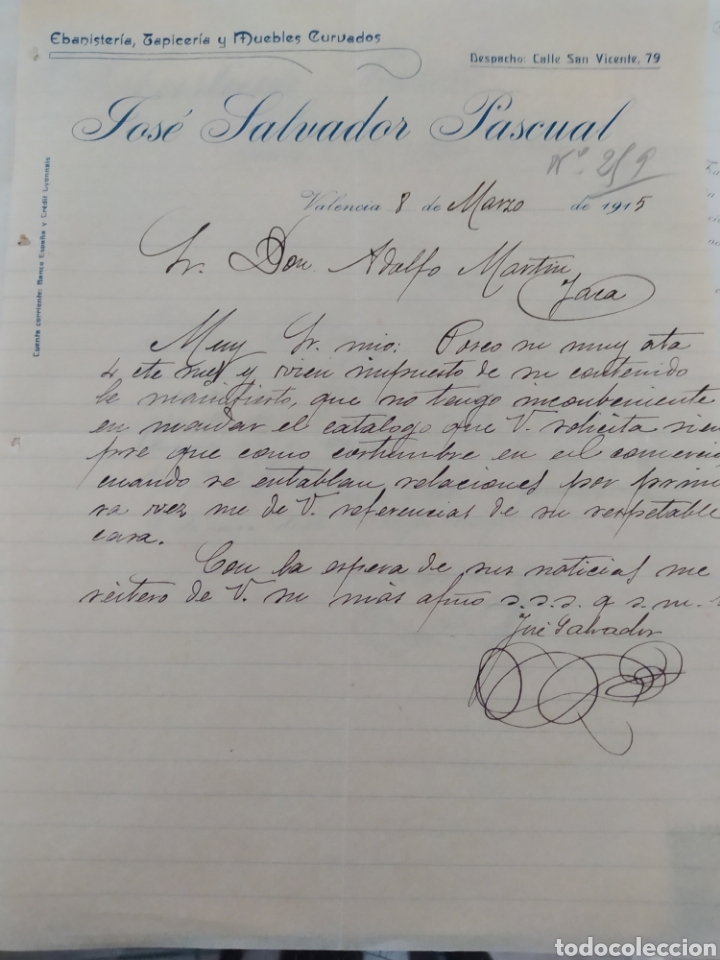 Ebanistería, Tapicería y Muebles Curvados
Despacho: Calle San Vicente, 79
José Salvador Pascual
Nº 259
Cuenta corriente: Banco España y Credit Lyonnais
Valencia 8 de Marzo de 1915
Sr. Don Adolfo Martin
Jaca
Muy Sr. mio: Poseo su muy ata
4 cte mes y vien impuesto de su contenido
le manifiesto, que no tengo inconbeniente
en mandar el catalogo que V. solicita siem
pre que como costumbre en el comerci
cuando se entablan relaciones por prime
ra vez me de V. referencias de su respetable
casa.
Con la espera de sus noticias me
reitero de V. su más afmo s.s.s. q s.m.
José Salvador
todocoleccion